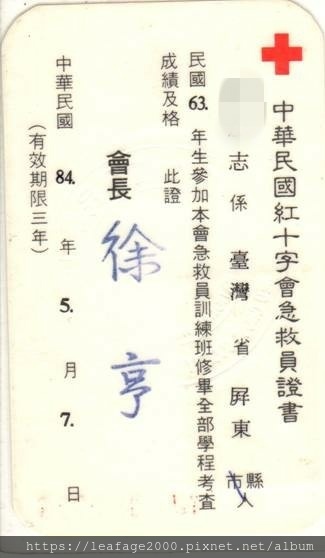 中華民國紅十字會急救員證書
志係臺灣省屏東縣市人
民國63.年生參加本會急救員訓練班修畢全部學程考查
成績及格 此證
會長 徐亨
中華民國84.年5.月7.日
(有效期限三年)
https://leafage2000.pixnet.net/album